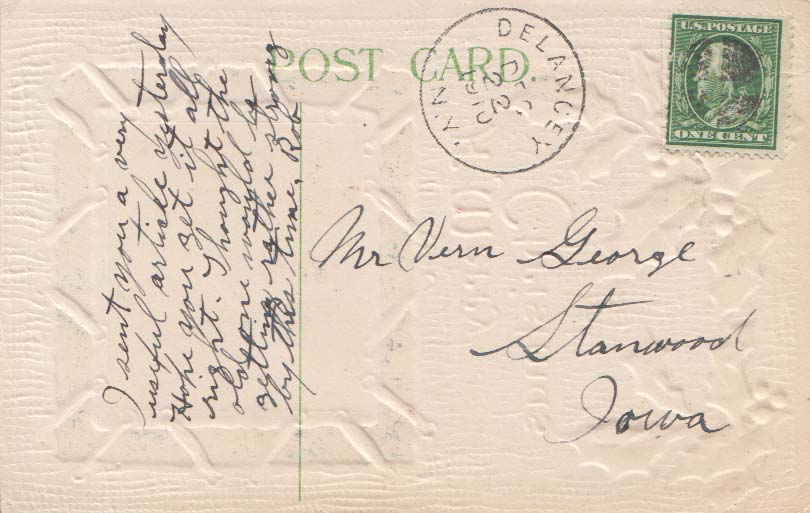 POST CARD.
DELANCEY
DEC
22
N.Y.
U.S. POSTAGE
ONE CENT
I sent you a very
useful article yesterday
Hope you get it all
right. Thought the
old one would be
getting rather strong
by this time. Rob
Mr Vern George
Stanwood
Iowa